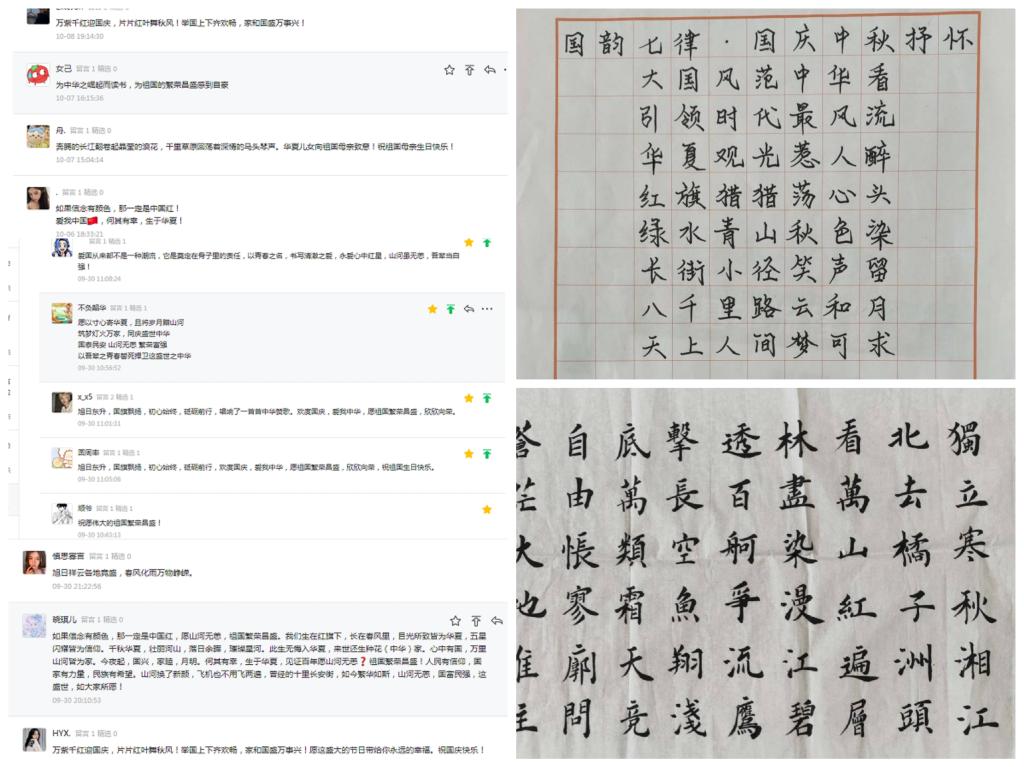 万紫千红迎国庆，片片红叶舞秋风！举国上下齐欢畅，家和国盛万事兴！
10-08 19:14:30
女己 留言 1 精选 0
为中华之崛起而读书，为祖国的繁荣昌盛感到自豪
10-07 16:15:36
丹. 留言 1 精选 0
奔腾的长江翻卷起晶莹的浪花，千里草原回荡着深情的马头琴声。华夏儿女向祖国母亲致意！祝祖国母亲生日快乐！
10-07 15:04:14
. 留言 1 精选 0
如果信念有颜色，那一定是中国红！
爱我中国🇨🇳，何其有幸，生于华夏！
10-06 18:33:21
留言 1 精选 1
爱国从来都不是一种潮流，它是奠定在骨子里的责任，以青春之名，书写清澈之爱，永爱心中红星，山河虽无恙，吾辈当自
强！
09-30 11:08:24
不负韶华 留言 1 精选 1
愿以寸心寄华夏，且将岁月赠山河
筑梦灯火万家，同庆盛世中华
国泰民安 山河无恙 繁荣富强
以吾辈之青春誓死捍卫这盛世之中华
09-30 10:56:52
x_x5 留言 2 精选 1
旭日东升，国旗飘扬，初心始终，砥砺前行，唱响了一首首中华赞歌。欢度国庆，爱我中华，愿祖国繁荣昌盛，欣欣向荣。
09-30 11:01:31
留言 1 精选 1
旭日东升，国旗飘扬，初心始终，砥砺前行，欢度国庆，爱我中华，愿祖国繁荣昌盛，欣欣向荣，祝祖国生日快乐。
09-30 11:05:06
顺爷 留言 1 精选 1
祝愿伟大的祖国繁荣昌盛！
09-30 10:43:13
慎思寡言 留言 1 精选 0
旭日祥云各地竞盛，春风化雨万物峥嵘。
09-30 21:22:56
晓琪儿 留言 1 精选 0
如果信念有颜色，那一定是中国红，愿山河无恙，祖国繁荣昌盛。我们生在红旗下，长在春风里，目光所致皆为华夏，五星
闪耀皆为信仰。千秋华夏，壮丽河山，落日余晖，璀璨星河。此生无悔入华夏，来世还生种花（中华）家。心中有国，万里
山河皆为家。今夜起，国兴，家睦，月明。何其有幸，生于华夏，见证百年愿山河无恙❓祖国繁荣昌盛！人民有信仰，国
家有力量，民族有希望。山河换了新颜，飞机也不用飞两遍，曾经的十里长安街，如今繁华如斯，山河无恙，国富民强，这
盛世，如大家所愿！
09-30 20:10:53
HYX. 留言 1 精选 0
万紫千红迎国庆，片片红叶舞秋风！举国上下齐欢畅，家和国盛万事兴！愿这盛大的节日带给你永远的幸福。祝国庆快乐！
国韵七律·国庆中秋抒怀
大国风范中华看
引领时代最风流
华夏观光惹人醉
红旗猎猎荡心头
绿水青山秋色染
长街小径笑声留
八千里路云和月
天上人间梦可求
獨立寒秋湘江
北去橘子洲頭
看萬山紅遍層
林盡染漫江碧
透百舸爭流鷹
擊長空魚翔淺
底萬類霜天竞
自由悵寥廓問